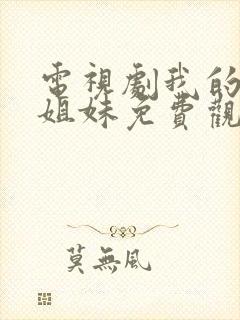 電視劇我的
姐妹免費觀
莫無風